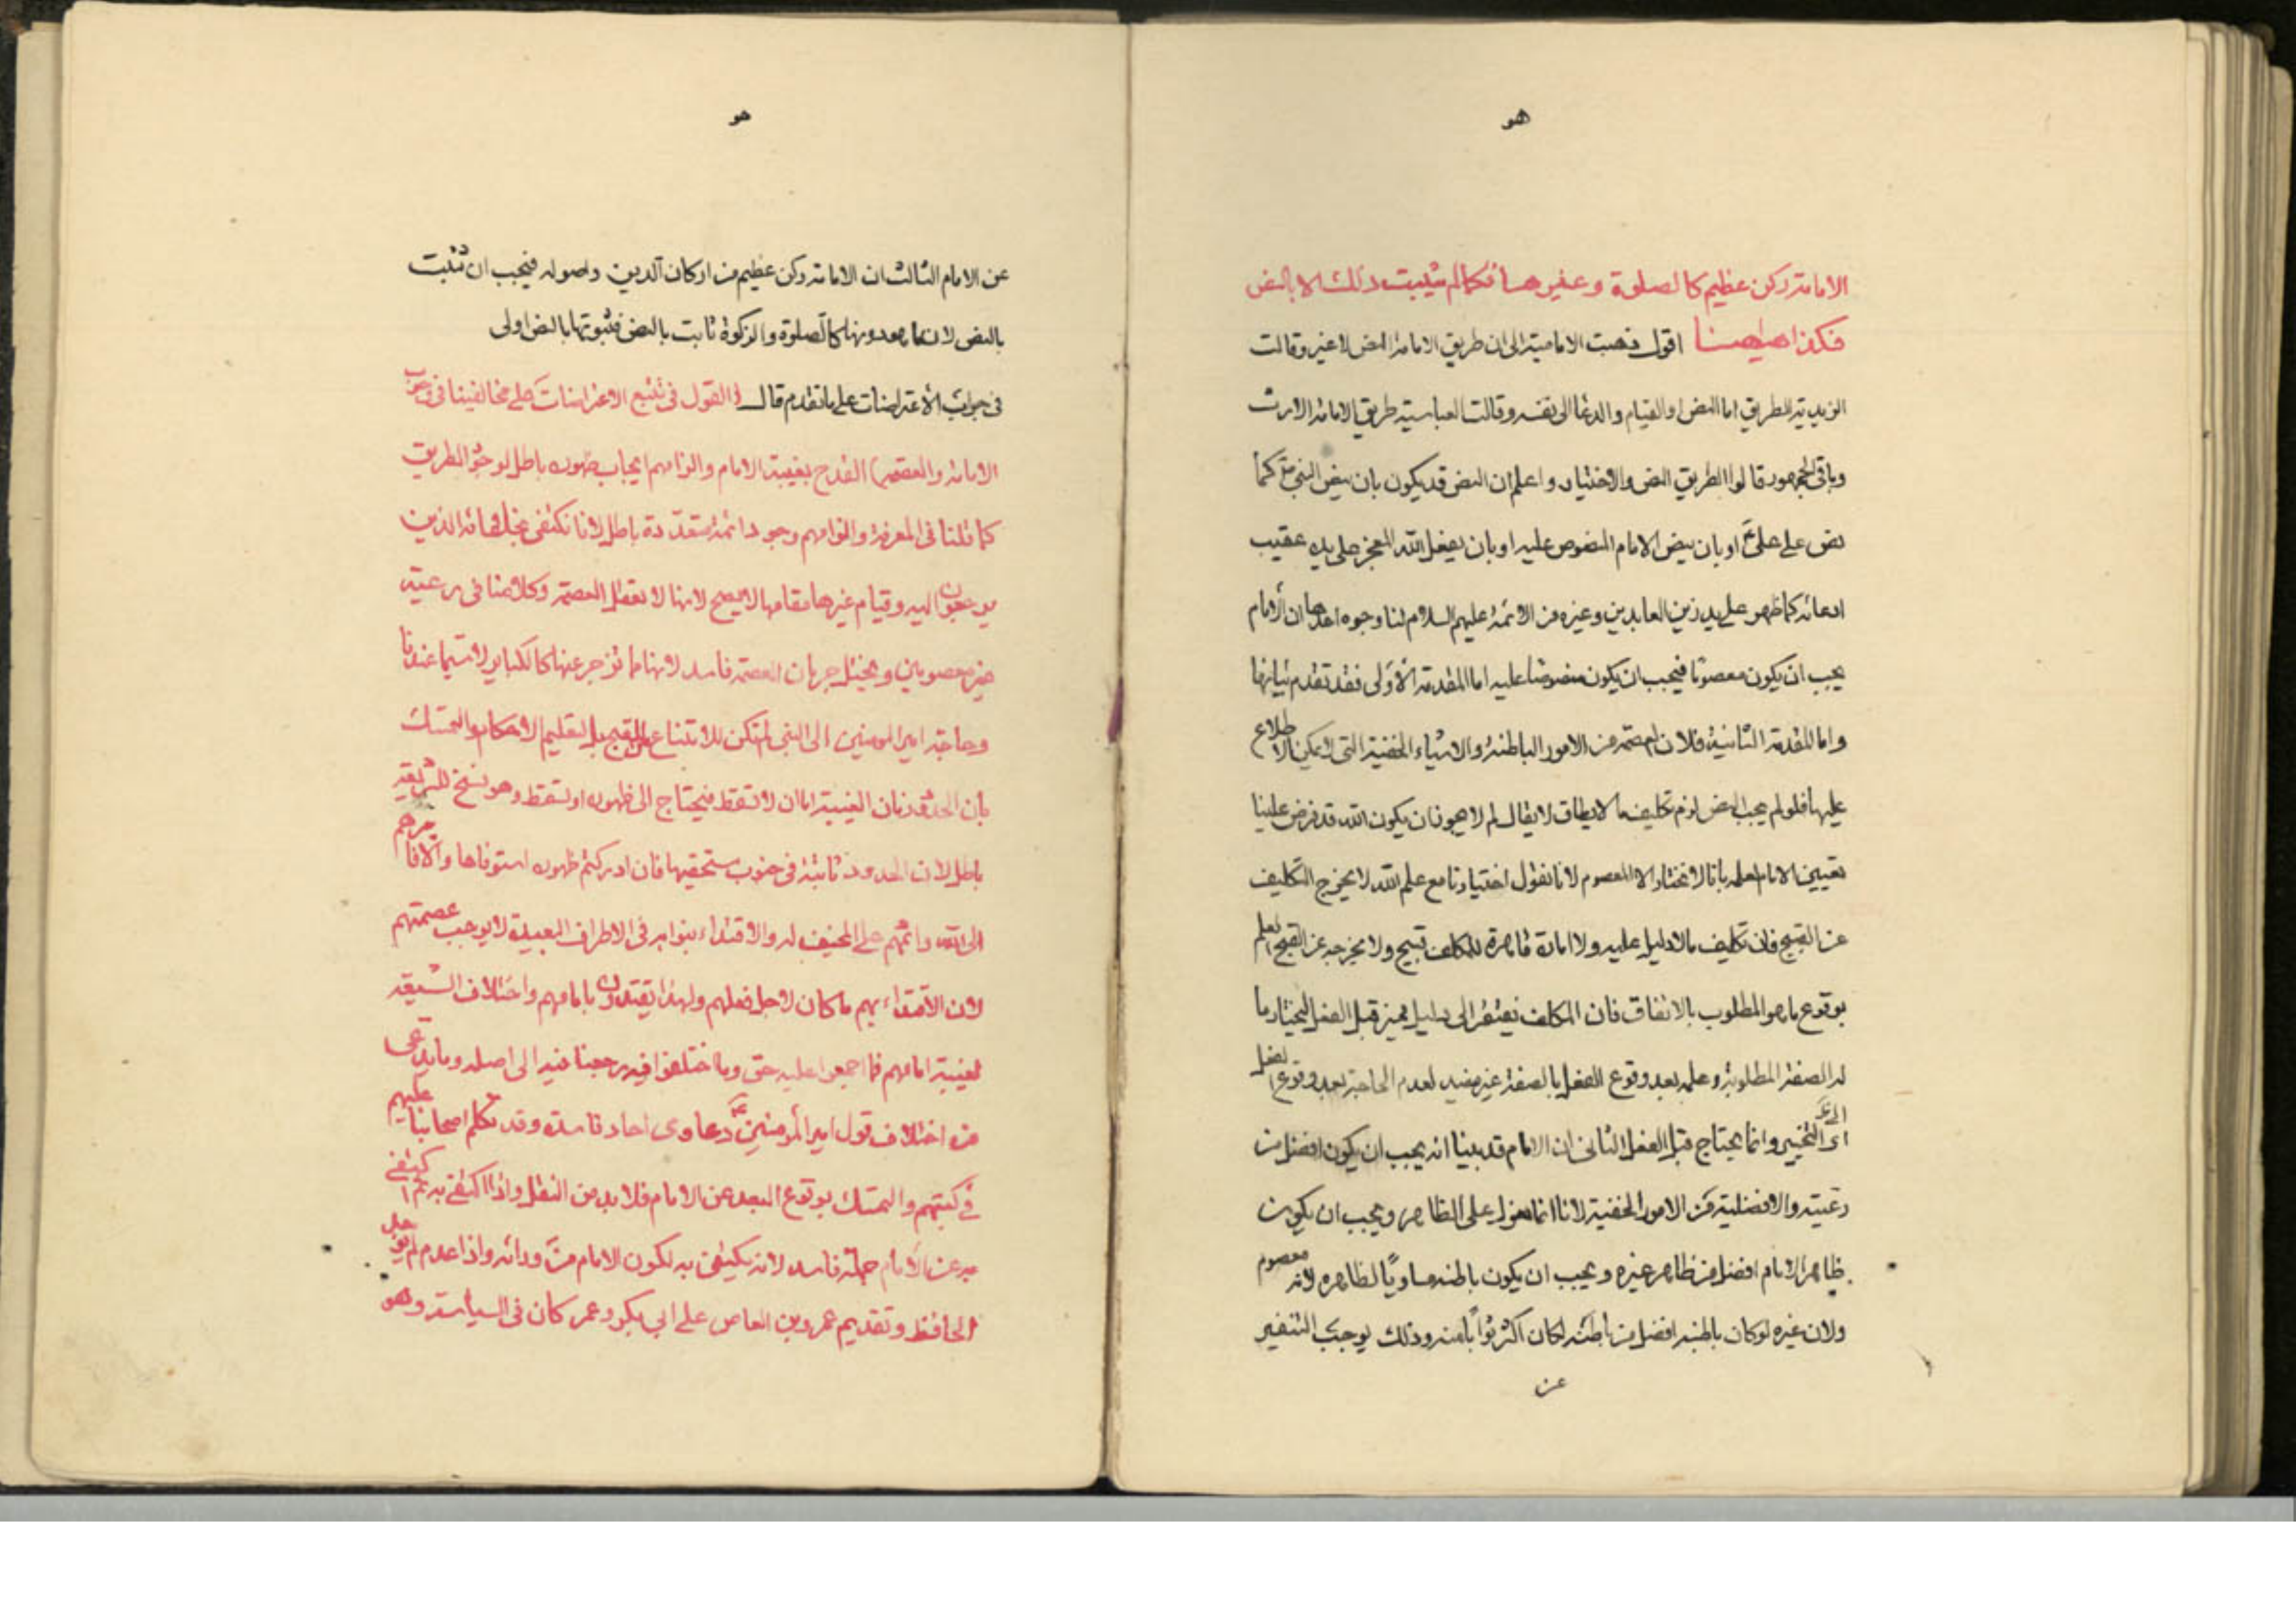 هو
الامامة ركن عظيم كالصلوة وغيرها فكما لم يثبت ذلك الا بالنص
فكذا هيهنا اقول ذهبت الامامية الى ان طريق الامامة النص لا غير وقالت
الزيدية الطريق اما النص او القيام والدعا الى نفسه وقالت العباسية طريق الامامة الارث
وباقى الجمهور قالوا الطريق النص والاختيار واعلم ان النص قد يكون بان ينص النبى كما
نص على على او بان ينص الامام المنصوص عليه او بان يفعل الله المعجز على يده عقيب
ادعائه كما ظهر على يد زين العابدين وغيره من الائمة عليهم السلام لنا وجوه احدها ان الامام
يجب ان يكون معصوما فيجب ان يكون منصوصا عليه اما المقدمة الاولى فقد تقدم بيانها
واما المقدمة الثانية فلان العصمة من الامور الباطنة والاشياء الخفية التى لا يمكن الاطلاع
عليها فلو لم يجب النص لزم تكليف ما لا يطاق لا يقال لم لا يجوز ان يكون الله قد فرض علينا
تعيين الامام لعلمه بانا لا نختار الا المعصوم لانا نقول اختيارنا مع علم الله لا يخرج التكليف
عن القبيح فان تكليف ما لا دليل عليه ولا امارة قاهرة للمكلف قبيح ولا يخرجه عن القبح العلم
بوقوع ما هو المطلوب بالاتفاق فان المكلف يفتقر الى دليل مميز قبل الفعل ليختار ما
له الصفة المطلوبة وعلمه بعد وقوع الفعل بالصفة غير مفيد لعدم الحاجة بعد وقوع الفعل
الى التخيير وانما يحتاج قبل الفعل الثانى ان الامام قد بينا انه يجب ان يكون افضل من
رعيته والافضلية من الامور الخفية لانا انما نعول على الظاهر ويجب ان يكون
ظاهر الامام افضل من ظاهر غيره ويجب ان يكون باطنه مساويا لظاهره لانه معصوم
ولان غيره لو كان باطنه افضل من باطنه لكان اكثر ثوابا منه وذلك يوجب التنفير
عن
هو
عن الامام الثالث ان الامامة ركن عظيم من اركان الدين واصوله فيجب ان تثبت
بالنص لان ما هو دونها كالصلوة والزكوة ثابت بالنص فثبوتها بالنص اولى
فى جواب الاعتراضات على ما تقدم قال القول فى تتبع الاعتراضات على مخالفينا فى وجوب
الامامة والعصمة القدح بغيبة الامام والزامهم ايجاب ظهوره باطل لوجود الطريق
كما قلنا فى المعرفة والزامهم وجود ائمة متعددة باطل لانا نكتفى بخلفائه الذين
يرجعون اليه وقيام غيرها مقامها لا يصح لانها لا تعقل العصمة وكلامنا فى رعية
غير معصومين وتخيل جريان العصمة فاسد لانها ما تزجر عنها كالكباير لا سيما عندنا
وحاجة امير المومنين الى النبى لم تكن للامتناع عن القبيح بل لتعليم الاحكام والتمسك
بان الحد فى زمان الغيبة اما ان لا تسقط فيحتاج الى ظهوره او تسقط وهو نسخ للشريعة
باطل لان الحدود ثابتة فى جنوب مستحقيها فان ادركتم ظهوره استوفاها والا فامرهم
الى الله واثمهم على المخيف له والاقتداء بنوابه فى الاطراف البعيدة لا يوجب عصمتهم
لان الاقتداء بهم ما كان لاجل فعلهم ولهذا يقتدون بامامهم واختلاف الشيعة
لغيبة امامهم فما اجمعوا عليه حق وما اختلفوا فيه رجعنا فيه الى اصله وما يدعى
من اختلاف قول امير المومنين دعاوى احاد فاسدة وقد تكلم اصحابنا عليهم
فى كتبهم والتمسك بوقوع البعد عن الامام فلا بد من النقل واذا اكتفى به ثم اكتفى
به عن الامام جملة فاسد لانه يكتفى به لكون الامام من ورائه واذا عدم لم يوجد
الحافظ وتقديم عمرو بن العاص على ابى بكر وعمر كان فى السياسة وهو